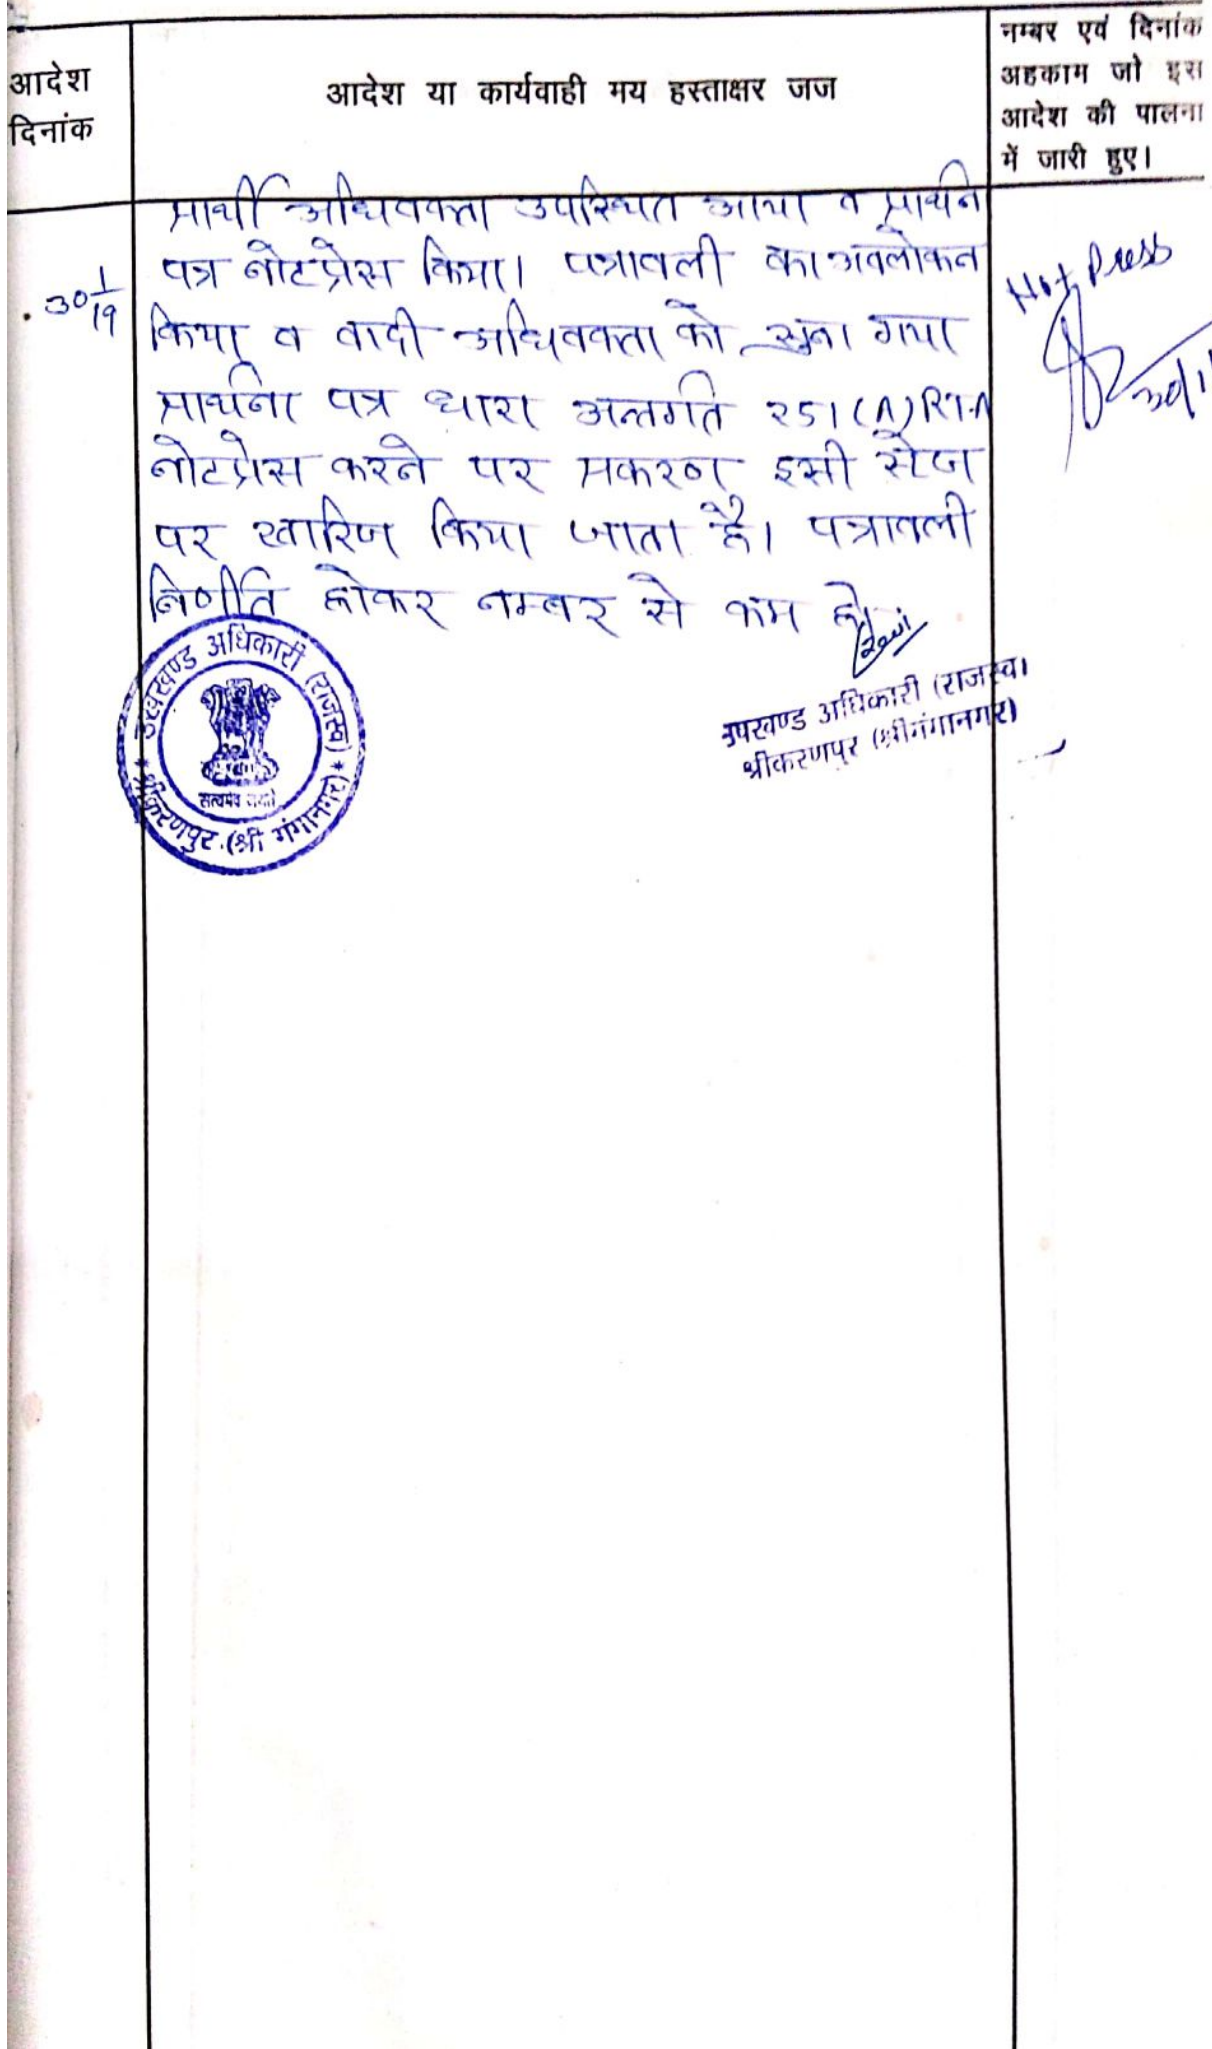 आदेश
दिनांक
आदेश या कार्यवाही मय हस्ताक्षर जज
नम्बर एवं दिनांक
अहकाम जो इस
आदेश की पालना
में जारी हुए।
30 1/19
प्रार्थी अधिवक्ता उपस्थित आया व प्रार्थना
पत्र नोटप्रेस किया। पत्रावली का अवलोकन
किया व वादी अधिवक्ता को सुना गया
प्रार्थना पत्र धारा अन्तर्गत 251(A) RTA
नोटप्रेस करने पर प्रकरण इसी स्टेज
पर खारिज किया जाता है। पत्रावली
निर्णीत होकर नम्बर से कम हो।
Not Press
उपखण्ड अधिकारी (राजस्व)
श्रीकरणपुर (श्रीगंगानगर)
उपखण्ड अधिकारी (राजस्व)
श्रीकरणपुर (श्री गंगानगर)
सत्यमेव जयते